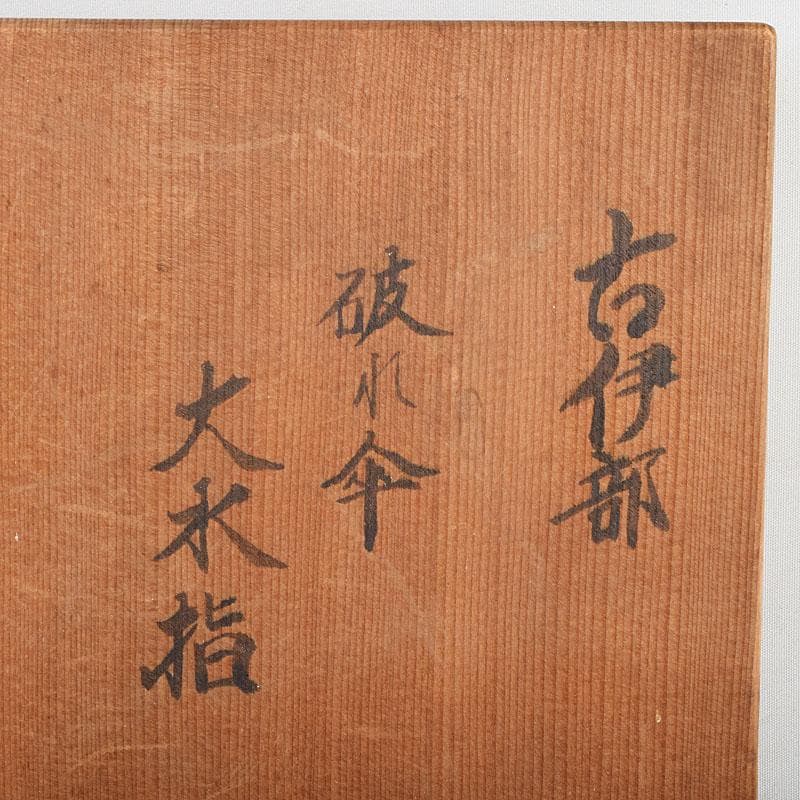 古伊部
破れ傘
大水指